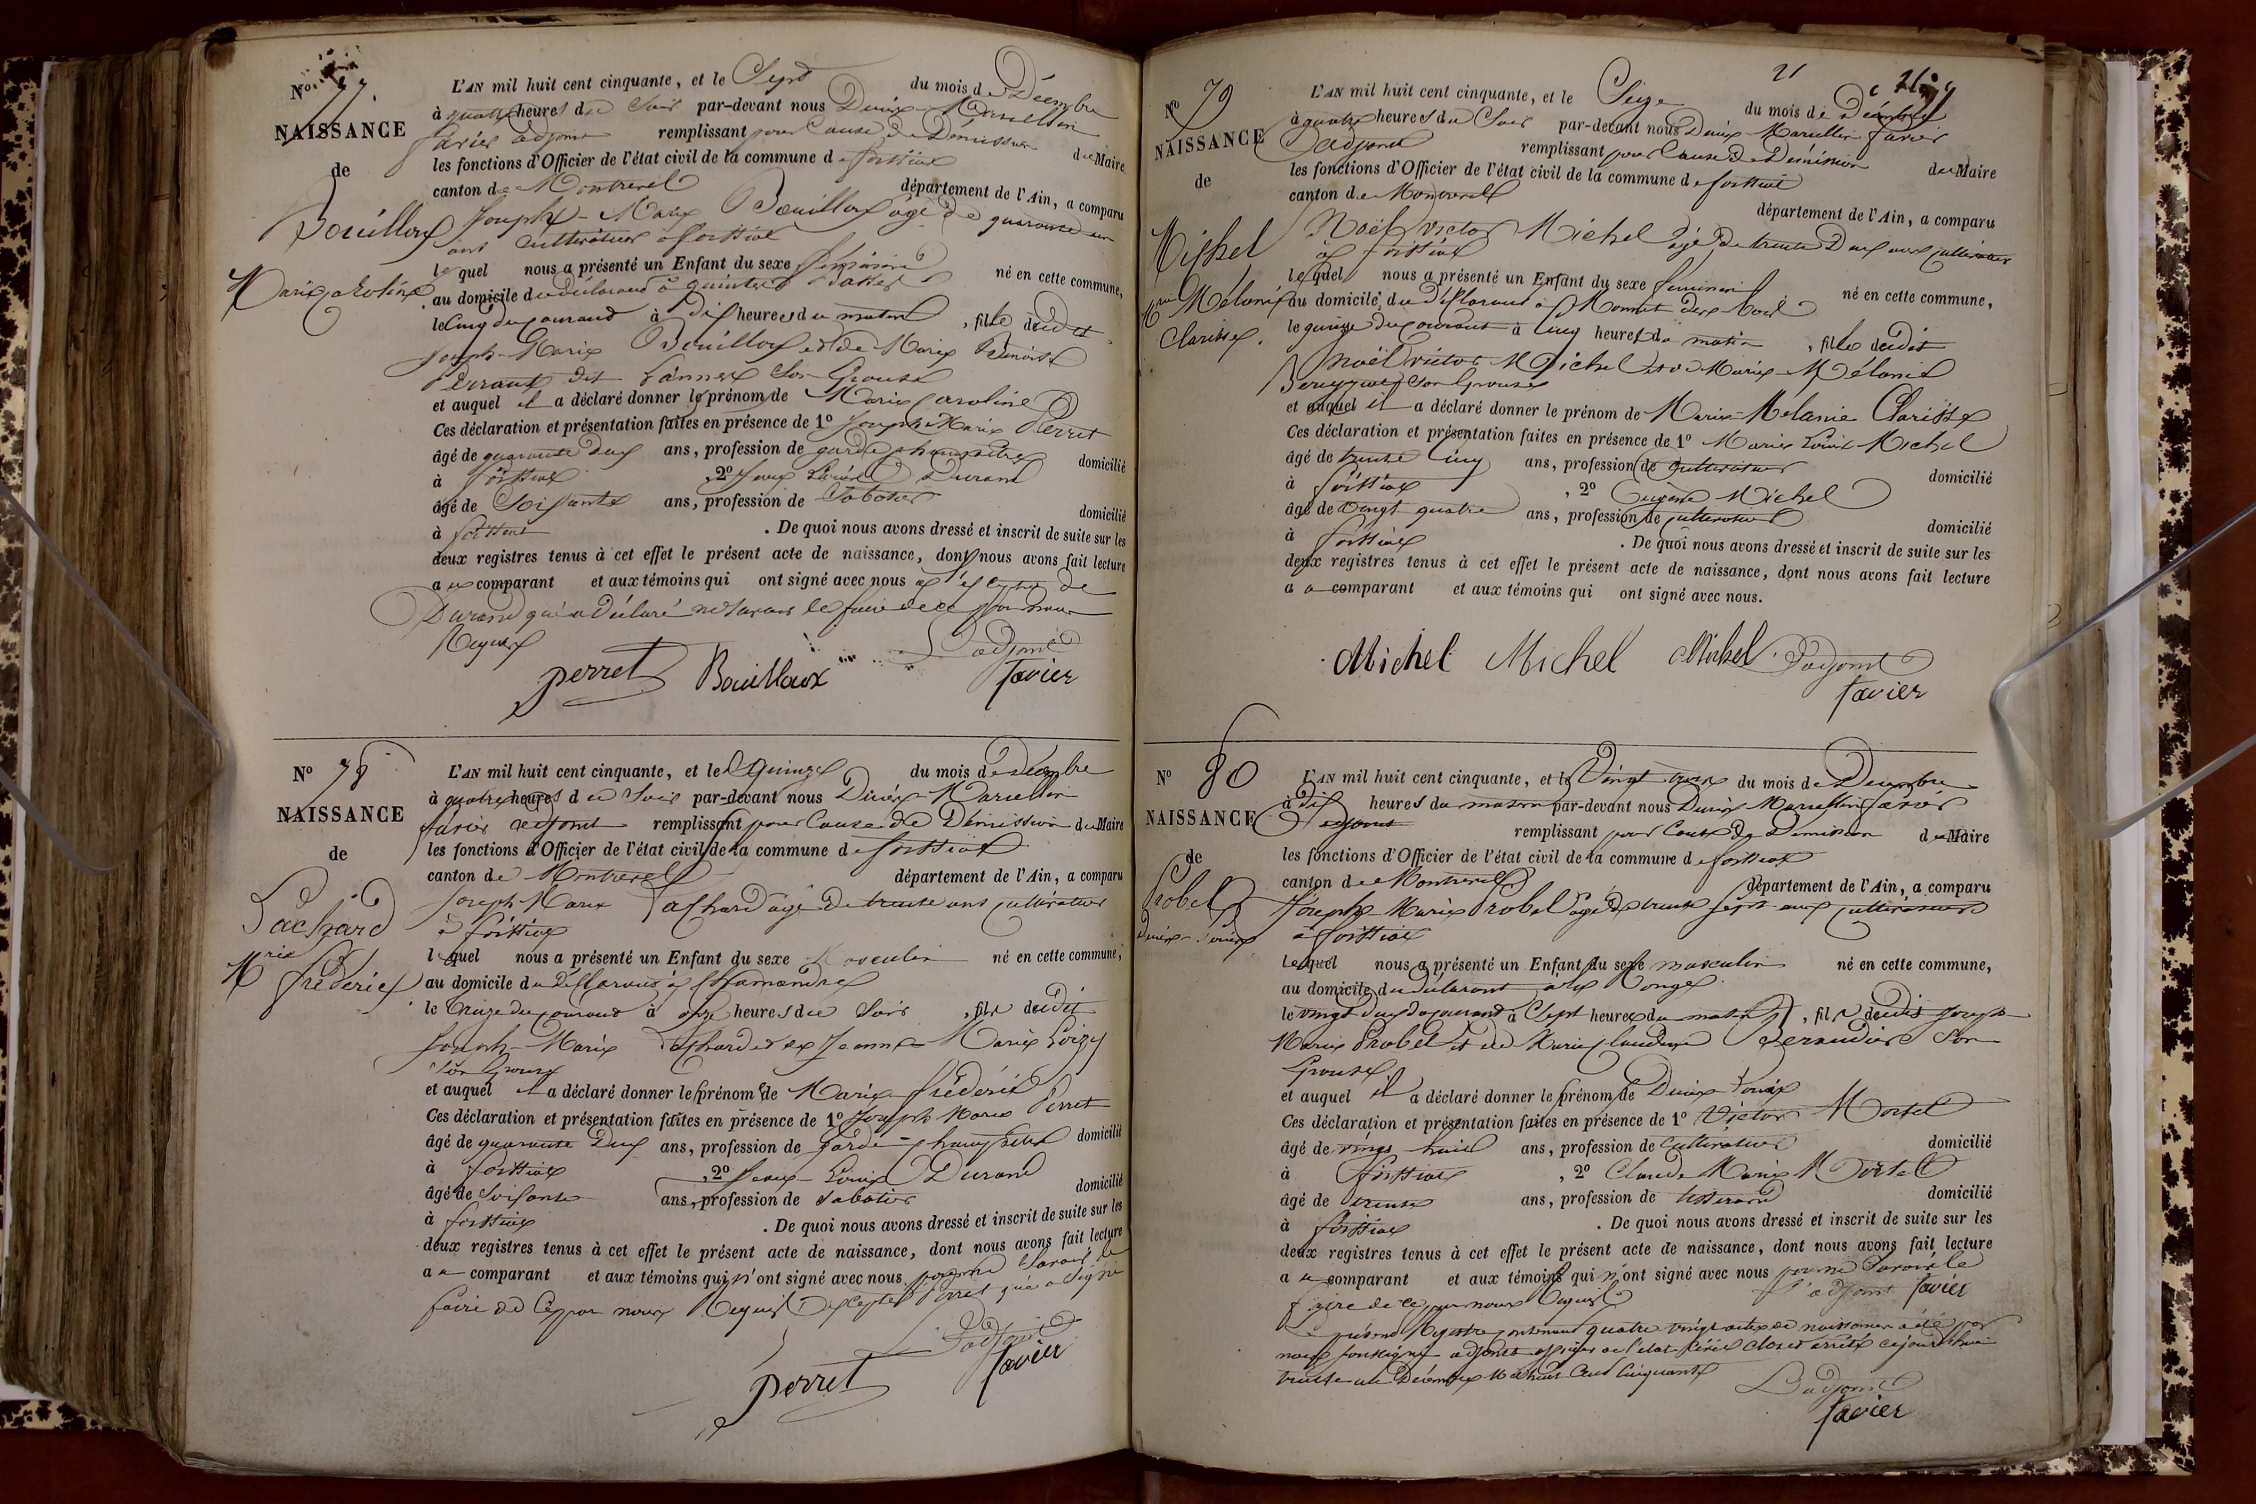 N° 77.
NAISSANCE
de
Bouilloux
Marie Caroline
L'AN mil huit cent cinquante, et le Sept du mois de Décembre
à quatre heures du Soir par-devant nous Denis Marcellin
favier adjoint remplissant pour Cause de Démission du Maire
les fonctions d'Officier de l'état civil de la commune de foissiat
canton de Montrevel département de l'Ain, a comparu
Joseph-Marie Bouilloux âgé de quarante un
ans cultivateur à foissiat
lequel nous a présenté un Enfant du sexe féminin né en cette commune,
au domicile du déclarant à
le cinq du courant à dix heures du matin, fille dudit
Joseph-Marie Bouilloux et de Marie Benoîte
Perraud dit son Epouse
et auquel il a déclaré donner le prénom de Marie Caroline
Ces déclaration et présentation faites en présence de 1° Joseph Marie Perret
âgé de quarante deux ans, profession de garde champêtre domicilié
à foissiat, 2° Jean Louis Durand
âgé de Soixante ans, profession de Sabotier domicilié
à foissiat. De quoi nous avons dressé et inscrit de suite sur les
deux registres tenus à cet effet le présent acte de naissance, dont nous avons fait lecture
au comparant et aux témoins qui ont signé avec nous à l'exception de
Durand qui a déclaré ne savoir le faire de ce pour nous
Requis
perret Bouilloux L'adjoint
favier
N° 78
NAISSANCE
de
Pachard
Mrie frédéric
L'AN mil huit cent cinquante, et le Quinze du mois de Décembre
à quatre heures du Soir par-devant nous Denis-Marcellin
favier adjoint remplissant pour Cause de Démission du Maire
les fonctions d'Officier de l'état civil de la commune de foissiat
canton de Montrevel département de l'Ain, a comparu
Joseph-Marie Pachard âgé de trente ans cultivateur
à foissiat
lequel nous a présenté un Enfant du sexe Masculin né en cette commune,
au domicile du déclarant à
le treize du courant à onze heures du Soir, fils dudit
Joseph-Marie Pachard et de Jeanne-Marie Loizy
son Epouse
et auquel il a déclaré donner le prénom de Marie frédéric
Ces déclaration et présentation faites en présence de 1° Joseph Marie Perret
âgé de quarante deux ans, profession de Garde-champêtre domicilié
à foissiat, 2° Jean-Louis Durand
âgé de Soixante ans, profession de Sabotier domicilié
à foissiat. De quoi nous avons dressé et inscrit de suite sur les
deux registres tenus à cet effet le présent acte de naissance, dont nous avons fait lecture
au comparant et aux témoins qui n'ont signé avec nous pour ne Savoir le
faire de ce par nous Requis Excepté Perret qui a signé
L'adjoint
perret favier
21
N° 79
NAISSANCE
de
Michel
Mrie Mélanie
Clarisse.
L'AN mil huit cent cinquante, et le Seize du mois de Décembre
à quatre heures du Soir par-devant nous Denis-Marcellin favier
adjoint remplissant pour Cause de Démission du Maire
les fonctions d'Officier de l'état civil de la commune de foissiat
canton de Montrevel département de l'Ain, a comparu
Noël victor Michel âgé de trente Deux ans cultivateur
à foissiat
lequel nous a présenté un Enfant du sexe féminin né en cette commune,
au domicile du déclarant à
le quinze du courant à cinq heures du matin, fille dudit
Noël victor Michel et de Marie-Mélanie
son Epouse
et auquel il a déclaré donner le prénom de Marie-Mélanie Clarisse
Ces déclaration et présentation faites en présence de 1° Marie Louis-Michel
âgé de trente cinq ans, profession de cultivateur domicilié
à foissiat, 2° Eugène Michel
âgé de vingt quatre ans, profession de cultivateur domicilié
à foissiat. De quoi nous avons dressé et inscrit de suite sur les
deux registres tenus à cet effet le présent acte de naissance, dont nous avons fait lecture
au comparant et aux témoins qui ont signé avec nous.
Michel Michel Michel L'adjoint
favier
N° 80
NAISSANCE
de
Probel
Denis-Louis
L'AN mil huit cent cinquante, et le Vingt deux du mois de Décembre
à dix heures du matin par-devant nous Denis Marcellin favier
adjoint remplissant pour Cause de Démission du Maire
les fonctions d'Officier de l'état civil de la commune de foissiat
canton de Montrevel département de l'Ain, a comparu
Joseph-Marie Probel âgé de trente sept ans cultivateur
à foissiat
lequel nous a présenté un Enfant du sexe masculin né en cette commune,
au domicile du déclarant
le vingt deux du courant à Sept heures du matin, fils dudit Joseph
Marie Probel et de Marie Claudine Peraudier son
Epouse
et auquel il a déclaré donner le prénom de Denis Louis
Ces déclaration et présentation faites en présence de 1° Victor Mortel
âgé de vingt huit ans, profession de cultivateur domicilié
à foissiat, 2° Claude Marie Mortel
âgé de trente ans, profession de tisserand domicilié
à foissiat. De quoi nous avons dressé et inscrit de suite sur les
deux registres tenus à cet effet le présent acte de naissance, dont nous avons fait lecture
au comparant et aux témoins qui n'ont signé avec nous pour ne Savoir le
faire de ce par nous Requis L'adjoint favier
Le présent Registre contenant quatre vingt actes de naissance a été par
nous soussigné adjoint officier de l'état civil clos et arrêté cejourd'hui
trente un Décembre Mil huit Cent Cinquante
L'adjoint
favier